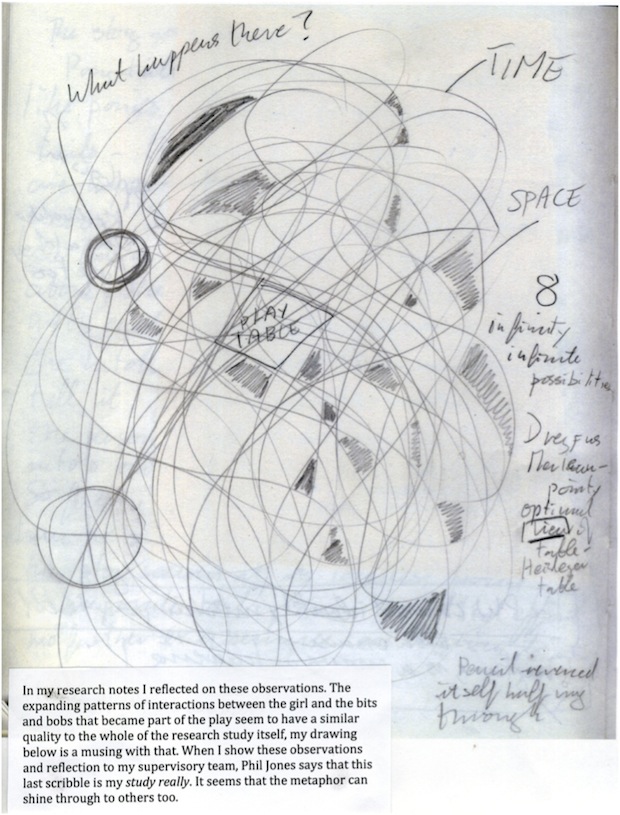 What happens there?
TIME
SPACE
PLAY
TABLE
8
infinity
infinite
possibilities
Dreyfus
Merleau-
ponty
optimal
view of
table -
Heidegger
table
Pencil
itself half way
through
In my research notes I reflected on these observations. The
expanding patterns of interactions between the girl and the bits
and bobs that became part of the play seem to have a similar
quality to the whole of the research study itself, my drawing
below is a musing with that. When I show these observations
and reflection to my supervisory team, Phil Jones says that this
last scribble is my study really. It seems that the metaphor can
shine through to others too.